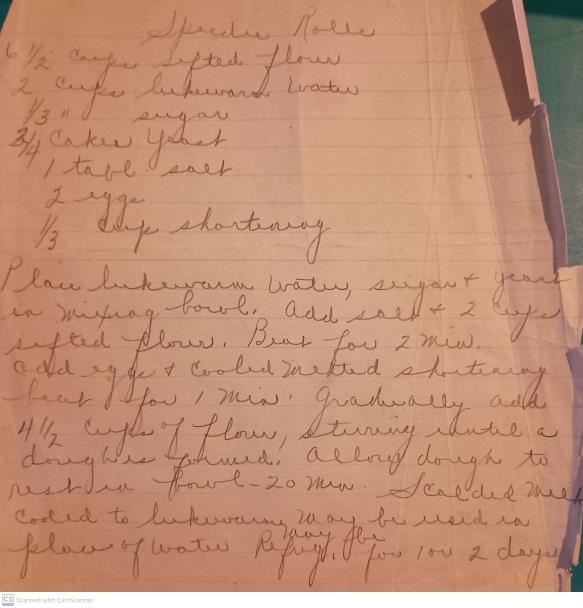 Speedie Rolls
6 1/2 cups sifted flour
2 cups lukewarm water
1/3 " sugar
3/4 cakes yeast
1 tabl. salt
2 eggs
1/3 cup shortening
Place lukewarm water, sugar & yeast
in mixing bowl. Add salt & 2 cups
sifted flour. Beat for 2 min.
add eggs & cooled melted shortening
beat for 1 min. Gradually add
4 1/2 cups of flour, stirring until a
dough is formed. Allow dough to
rest in bowl - 20 min. Scalded milk
cooled to lukewarm may be used in
place of water Refrig. may be for 1 or 2 days
CS Scanned with CamScanner